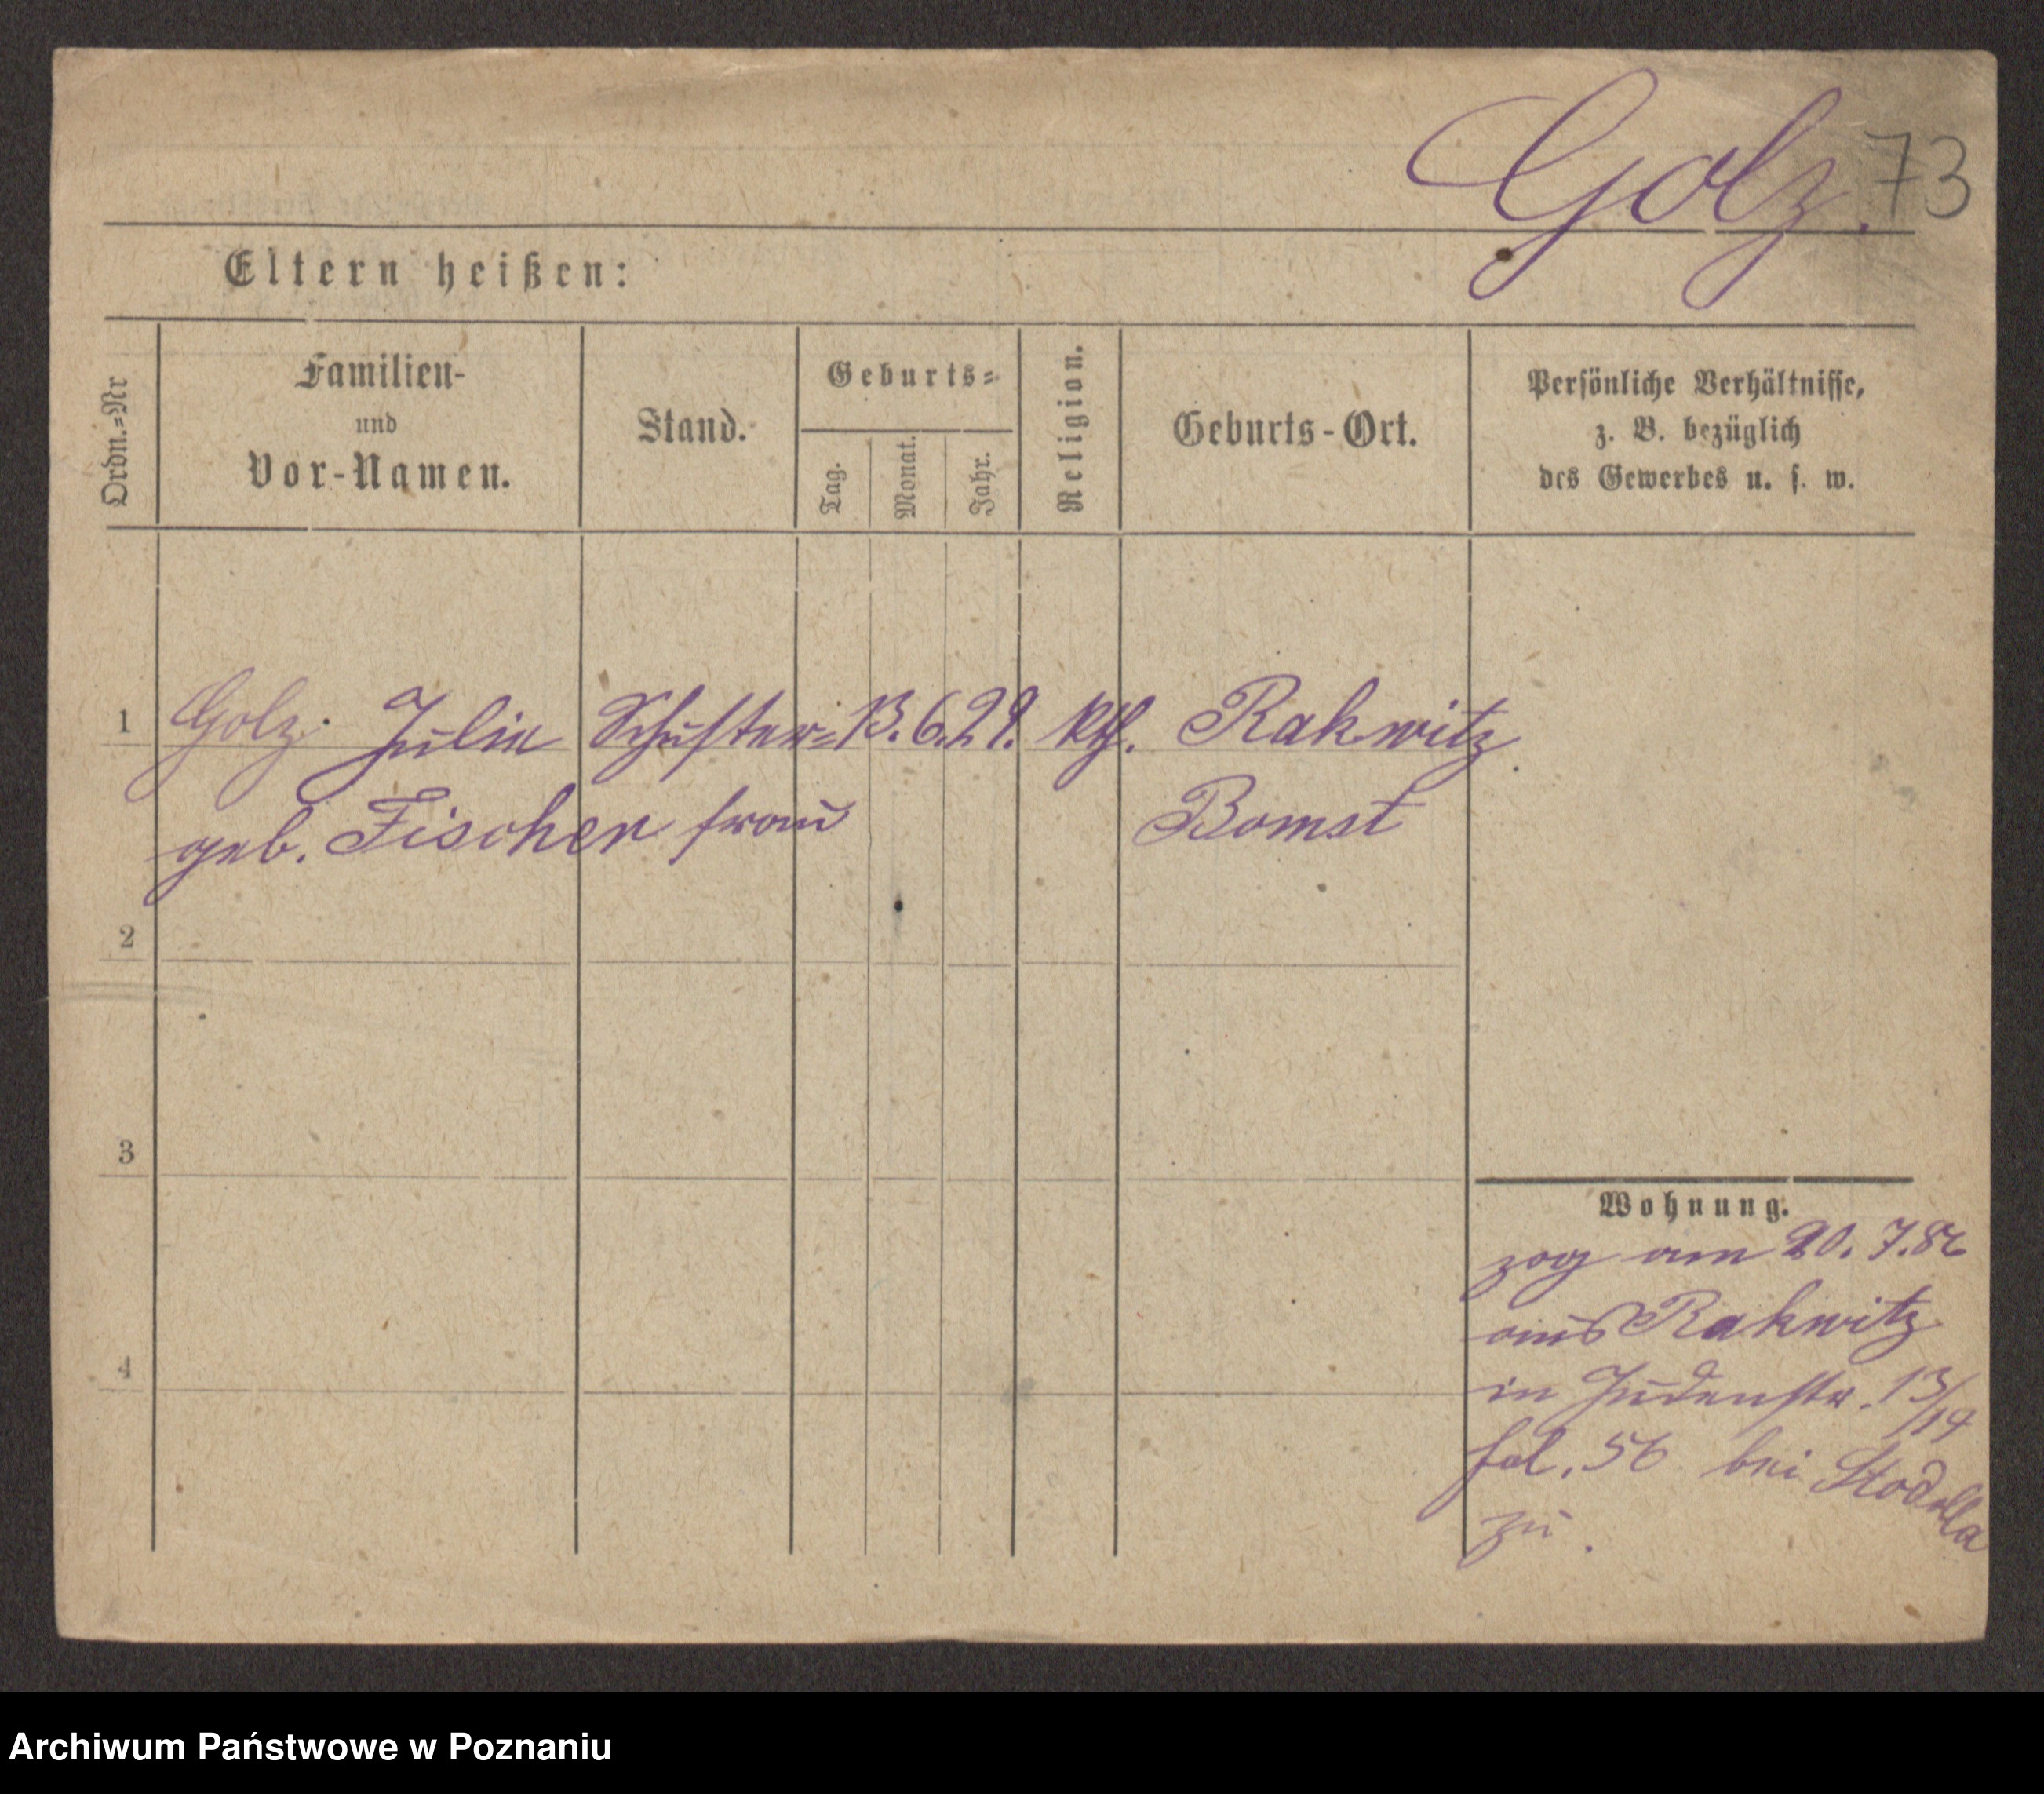 Golz. 73
Eltern heißen:
Ordn.=Nr
Familien-
und
Vor-Namen.
Stand.
Geburts=
Tag.
Monat.
Jahr.
Religion.
Geburts-Ort.
Persönliche Verhältnisse,
z. B. bezüglich
des Gewerbes u. s. w.
1 Golz Julie Schuster= 13. 6. 29. kth. Rakwitz
geb. Fischer frau Bomst
2
3
4
Wohnung.
zog am 20. 7. 86
aus Rakwitz
in Judenstr. 13/14
fol. 56 bei
zu.
Archiwum Państwowe w Poznaniu